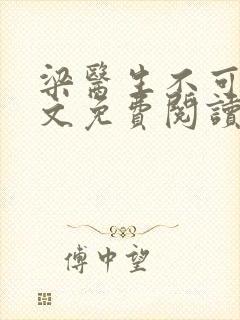 梁醫生不可
文免費閱讀
傅中望